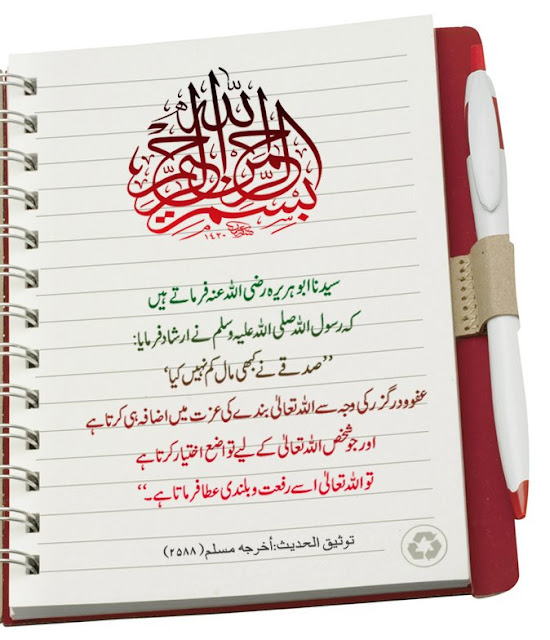 بسم الله الرحمن الرحيم
١٤٢٠
سیدنا ابو ہریرہ رضی اللہ عنہ فرماتے ہیں
کہ رسول اللہ صلی اللہ علیہ وسلم نے ارشاد فرمایا:
”صدقے نے کبھی مال کم نہیں کیا‘
عفوودرگزر کی وجہ سے اللہ تعالیٰ بندے کی عزت میں اضافہ ہی کرتا ہے
اور جو شخص اللہ تعالیٰ کے لیے تواضع اختیار کرتا ہے
تو اللہ تعالیٰ اسے رفعت و بلندی عطا فرماتا ہے۔“
توثيق الحديث: أخرجه مسلم (٢٥٨٨)